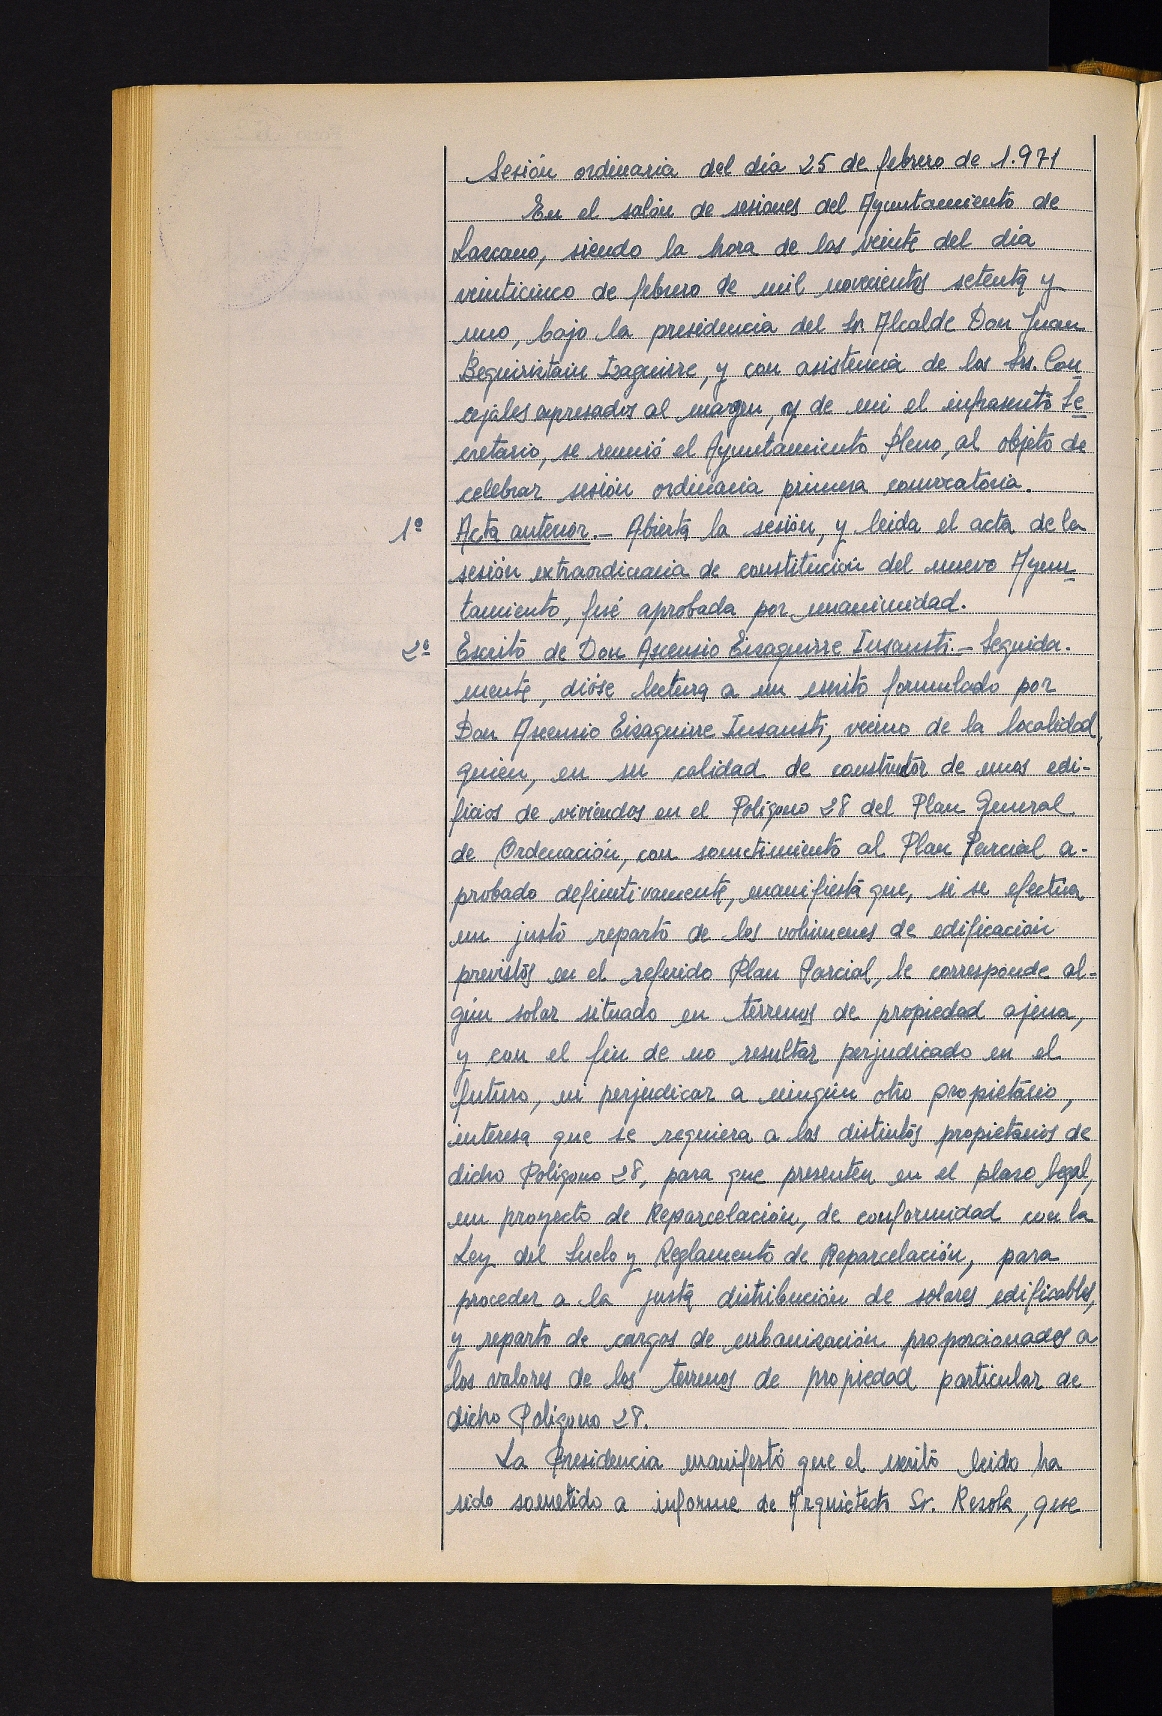 Sesión ordinaria del día 25 de febrero de 1.971
En el salón de sesiones del Ayuntamiento de
Lazcano, siendo la hora de las veinte del día
veinticinco de febrero de mil novecientos setenta y
uno, bajo la presidencia del Sr. Alcalde Don Juan
Beguiristain Izaguirre, y con asistencia de los Srs. Con
cejales expresados al margen, y de mi el infrascrito Se
cretario, se reunió el Ayuntamiento Pleno, al objeto de
celebrar sesión ordinaria primera convocatoria.
1º Acta anterior.- Abierta la sesión, y leida el acta de la
sesión extraordinaria de constitución del nuevo Ayun
tamiento, fué aprobada por unanimidad.
2º Escrito de Don Ascensio Eizaguirre Insausti.- Seguida-
mente, dióse lectura a un escrito formulado por
Don Ascensio Eizaguirre Insausti, vecino de la localidad,
quien, en su calidad de constructor de unos edi-
ficios de viviendas en el Polígono 28 del Plan General
de Ordenación, con sometimiento al Plan Parcial a-
probado definitivamente, manifiesta que, si se efectua
un justo reparto de los volúmenes de edificación
previstos en el referido Plan Parcial, le corresponde al-
gún solar situado en terrenos de propiedad ajena,
y con el fin de no resultar perjudicado en el
futuro, ni perjudicar a ningún otro propietario,
interesa que se requiera a los distintos propietarios de
dicho Polígono 28, para que presenten en el plazo legal,
un proyecto de Reparcelación, de conformidad con la
Ley del Suelo y Reglamento de Reparcelación, para
proceder a la justa distribución de solares edificables,
y reparto de cargas de urbanización proporcionados a
los valores de los terrenos de propiedad particular de
dicho Polígono 28.
La Presidencia manifestó que el escrito leido ha
sido sometido a informe de Arquictecto Sr. Resola, que